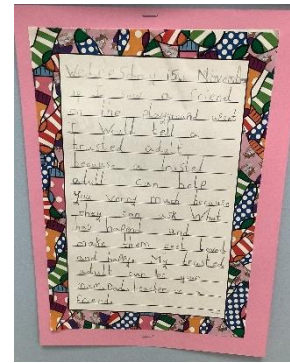 Wednesday 15th November
if I saw a friend
on the playground upset
I would tell a
trusted adult
because a trusted
adult can help
you very much because
they can ask what
has happend and
make them feel loved
and happy. My trusted
adult can be your
mam, Dad, teacher
friends